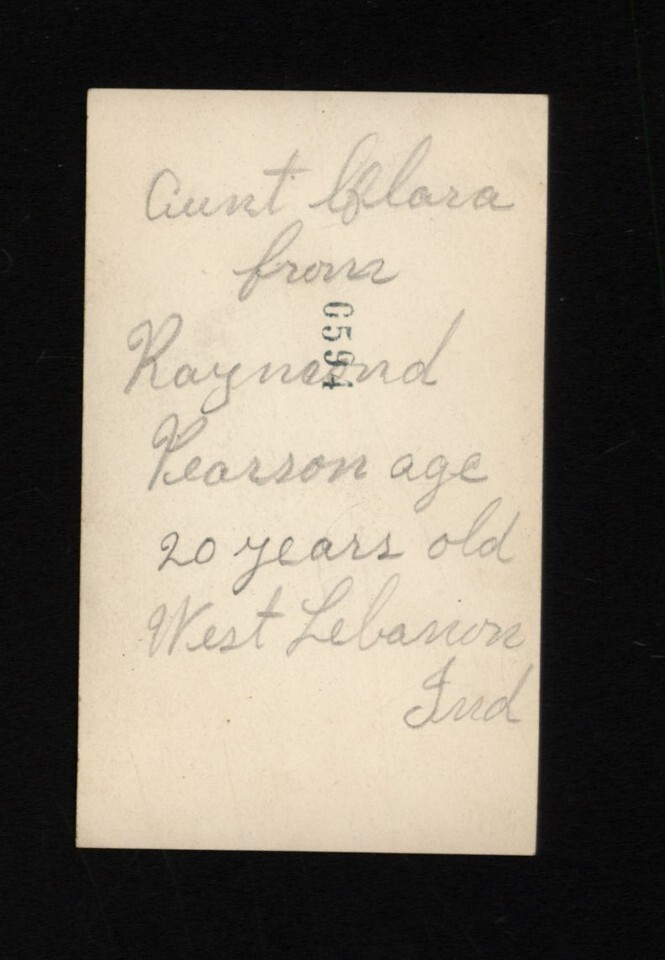 Aunt Clara
from
Raymond
Pearson age
20 years old
West Lebanon
Ind
6594